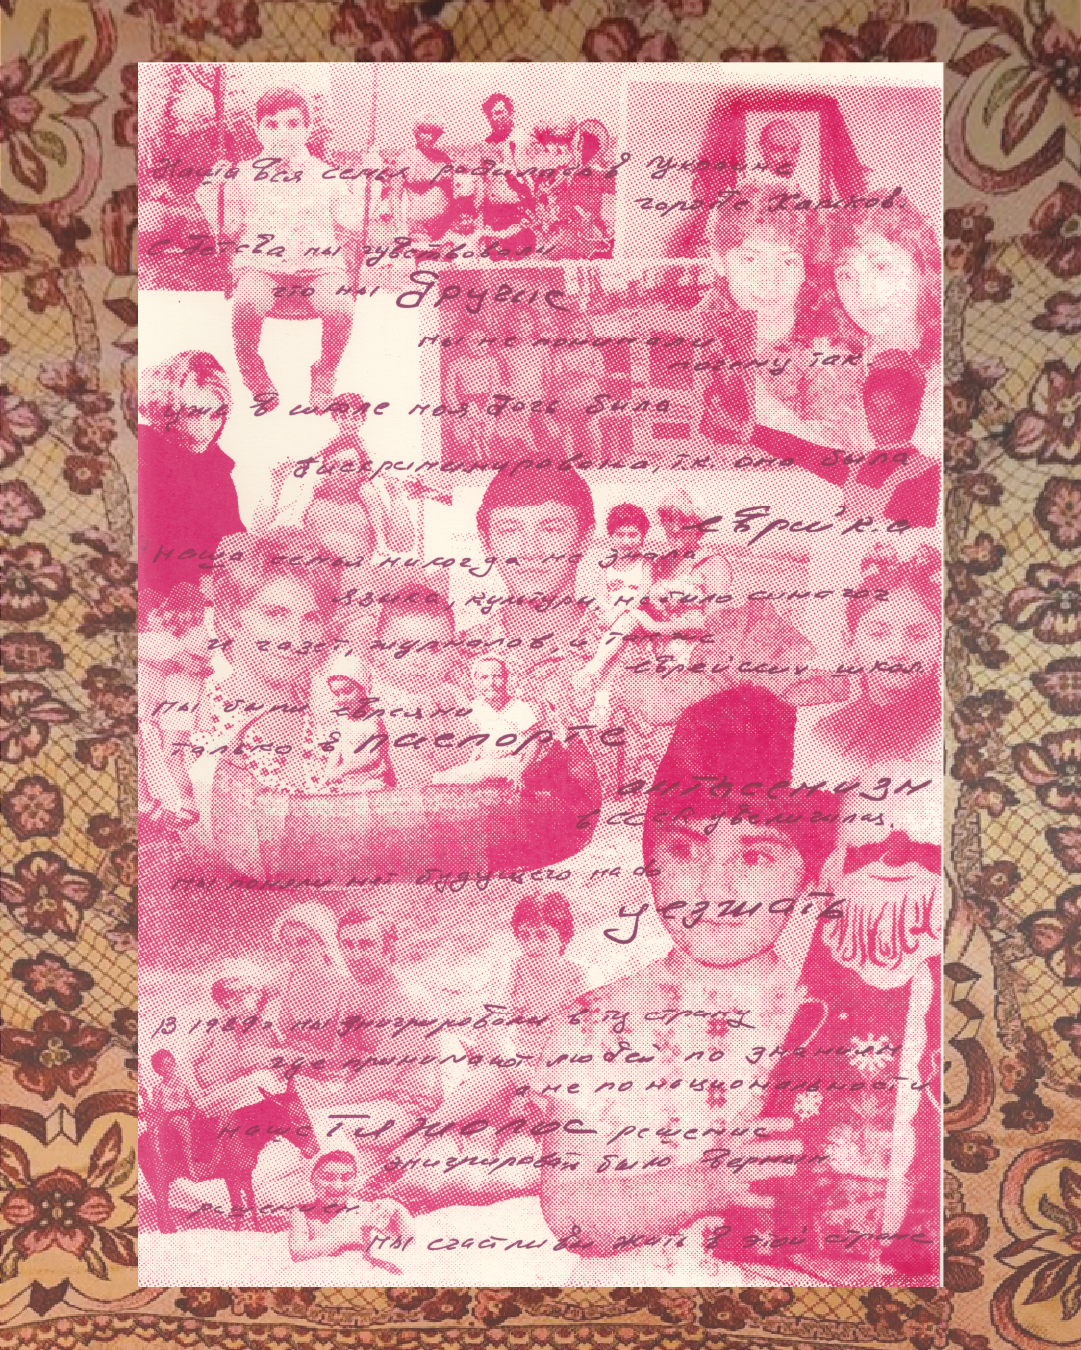 Наша вся семья родилась в Украине
городе Харьков.
С детства мы чувствовали
что мы другие
мы не понимали
почему так.
уже в школе моя дочь была
дискриминирована, т.к. она была
еврейка
наша семья никогда не знала
языка, культуры, не было синагог
и газет, журналов, а также
еврейских школ.
мы были евреями
только в паспорте
антисемизм
в СССР увеличился.
мы поняли нет будущего надо
уезжать
В 1989г мы эмигрировали в ту страну
где принимают людей по знаниям
а не по национальности
наше тяжолое решение
эмигрировать было верным
решением
мы счастливы жить в этой стране